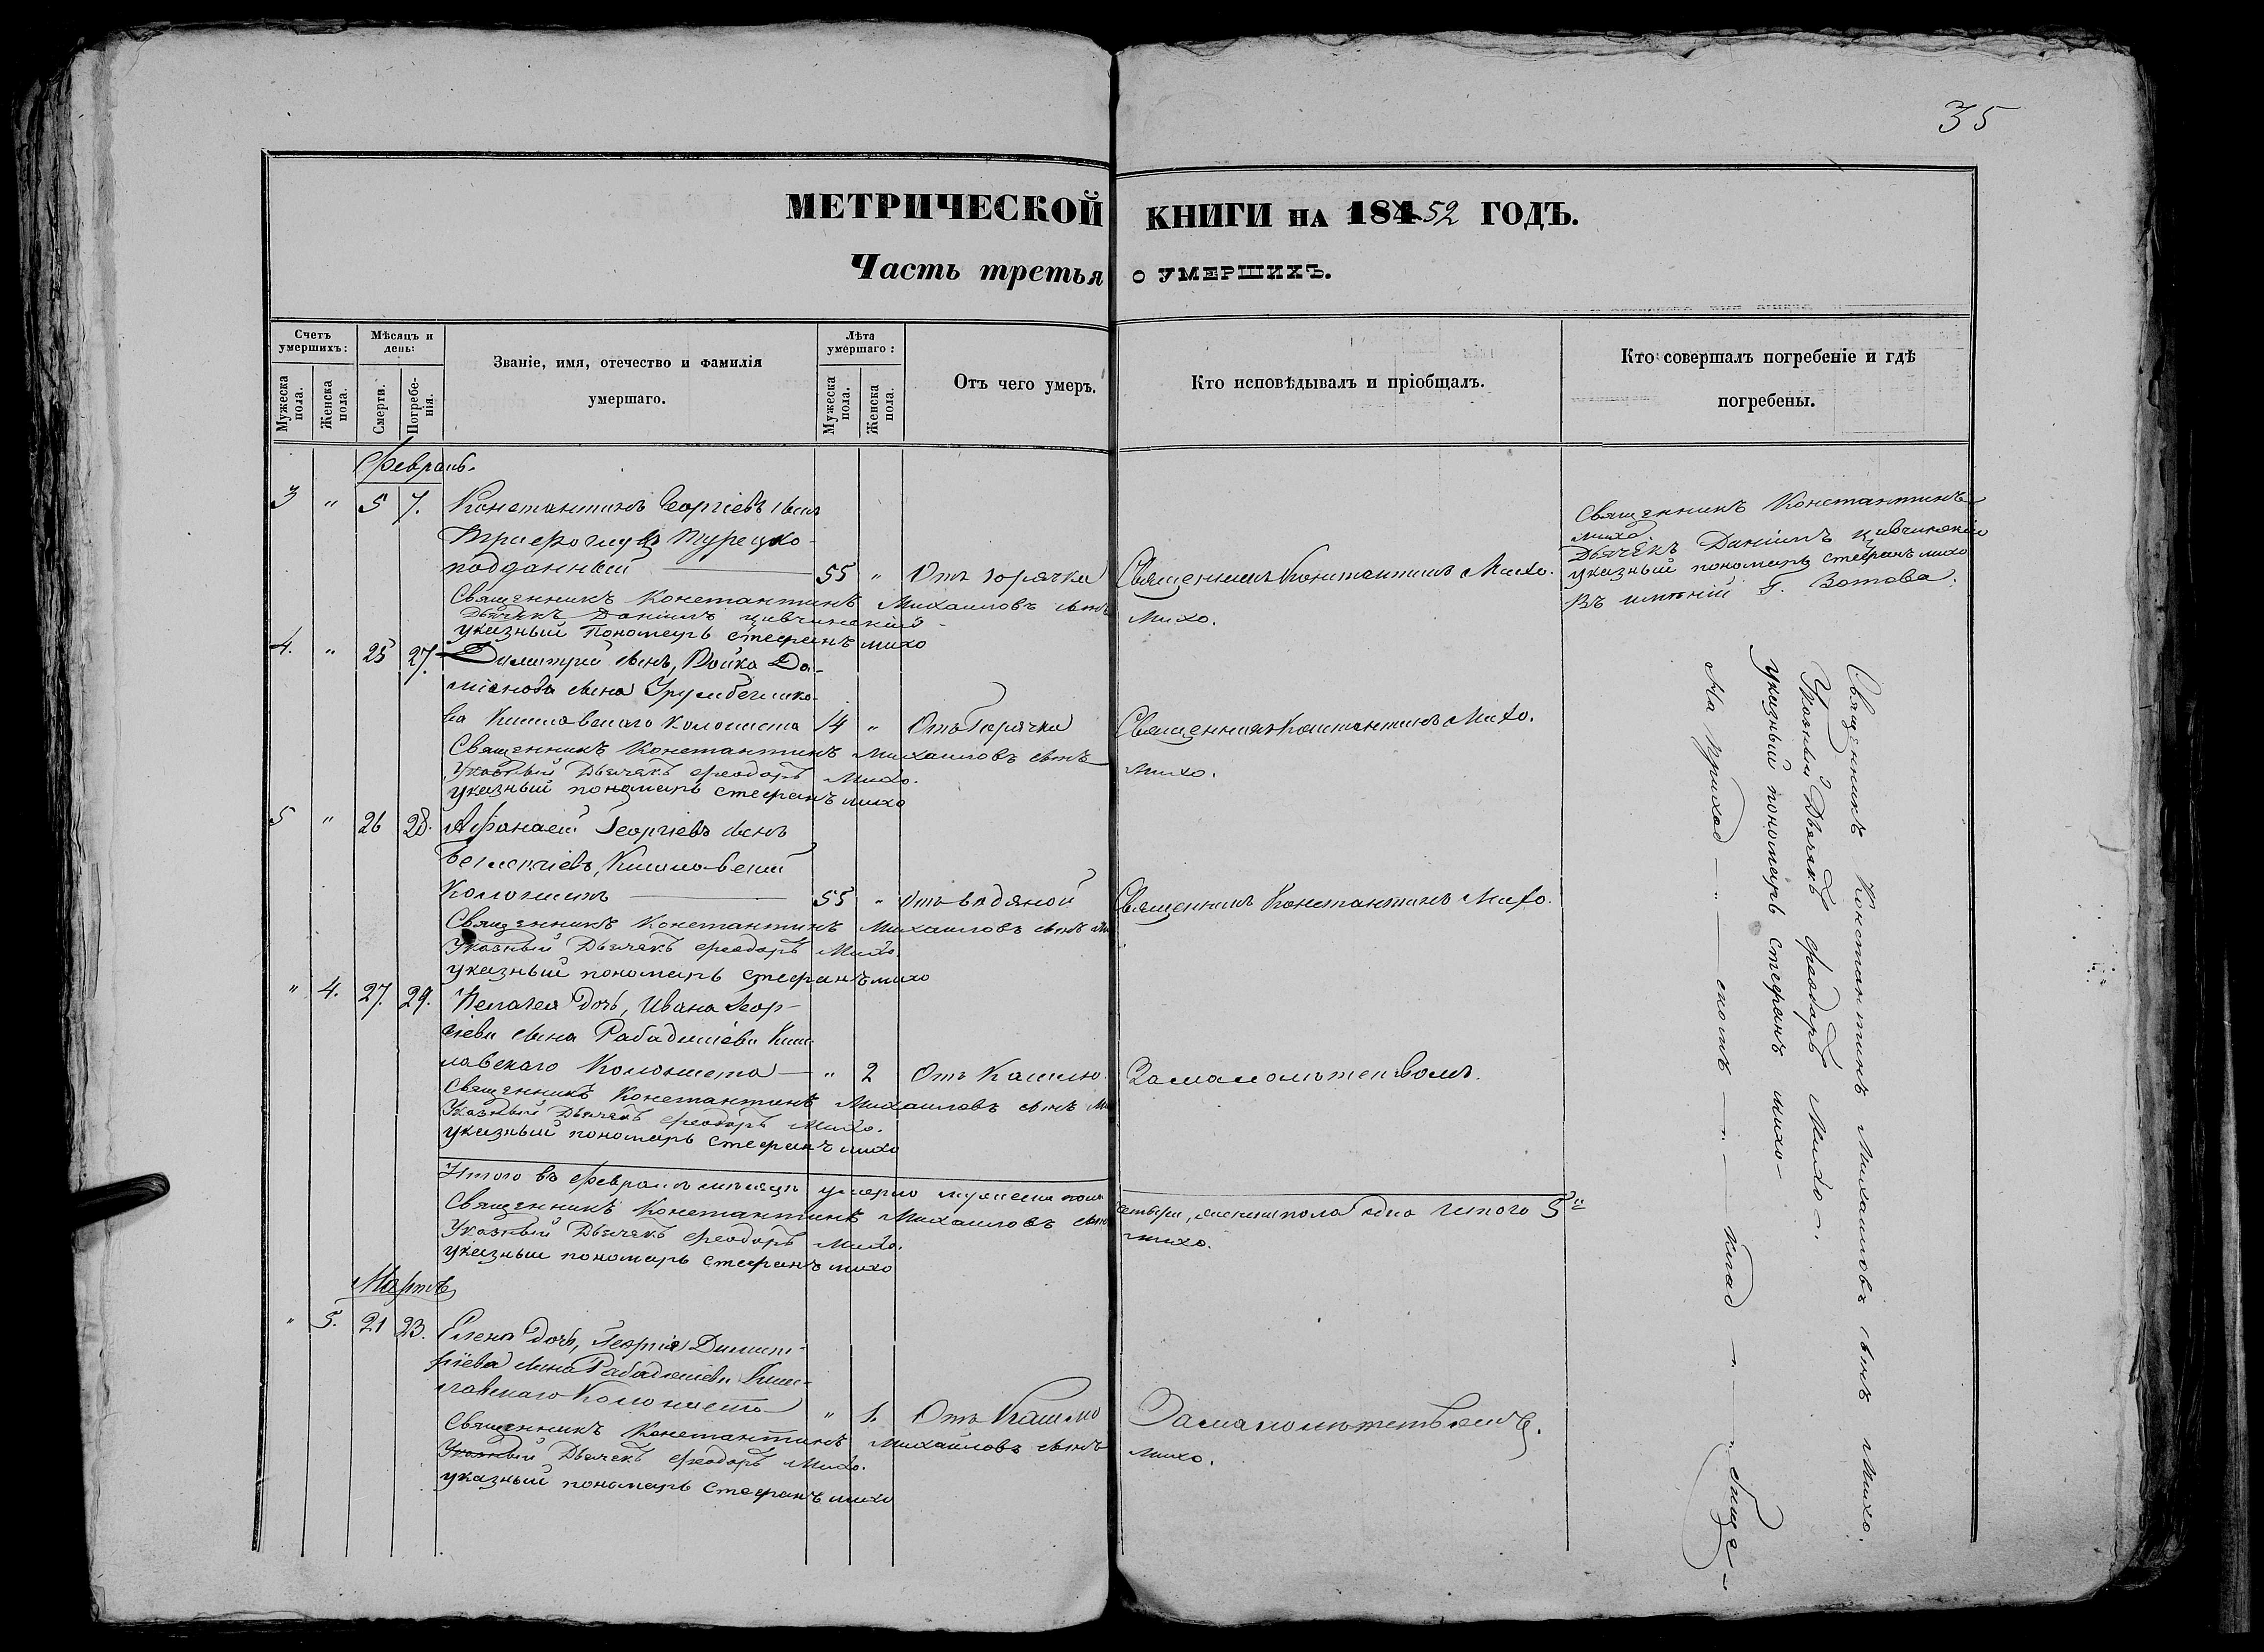 35
МЕТРИЧЕСКОЙ КНИГИ НА 184 52 ГОДЪ.
Часть третья о УМЕРШИХЪ.
Счетъ умершихъ:
Мужеска пола.
Женска пола.
Мѣсяцъ и день:
Смерти.
Погребенія.
Званіе, имя, отечество и фамилія
умершаго.
Лѣта умершаго:
Мужеска пола.
Женска пола.
Отъ чего умеръ.
Кто исповѣдывалъ и пріобщалъ.
Кто совершалъ погребеніе и гдѣ
погребены.
Февраль.
3 " 5 7. Константинъ Георгіевъ сынъ
Турецко
подданный 55 " Отъ горячки Священникъ Константинъ Михо.
Священникъ Константинъ Михаиловъ сынъ Михо.
Дьячекъ Даніилъ Цивчинскій
указный Пономарь Стефанъ Михо
Священникъ Константинъ
Михо
Дьячекъ Даніилъ Цивчинскій
указный пономарь Стефанъ Михо
Въ имѣній Г. Зотова.
4. " 25 27. Димитрій сынъ, Войка Да-
міанова сына
ва Кишлавскаго колониста 14 " Отъ Горячки Священникъ Константинъ Михо.
Священникъ Константинъ Михаиловъ сынъ Михо.
Указный Дьячекъ Феодоръ Михо.
указный пономарь Стефанъ Михо
5 " 26 28. Афанасій Георгіевъ сынъ
Кишлавскій
Колонистъ 55 " Отъ водяной Священникъ Константинъ Михо.
Священникъ Константинъ Михаиловъ сынъ Ми
Указный Дьячекъ Феодоръ Михо.
указный пономарь Стефанъ Михо
" 4. 27. 29. Пелагея дочь, Ивана Геор-
гіева сына Рабаджіева Киш-
лавскаго Колониста " 2 Отъ Кашлю Замалолѣтствомъ.
Священникъ Константинъ Михаиловъ сынъ Ми
Указный Дьячекъ Феодоръ Михо.
указный пономарь Стефанъ Михо
Итого въ Февралѣ мѣсяцѣ умерло мужеска пола четыри, женска пола одна итого 5"
Священникъ Константинъ Михаиловъ сынъ Михо.
Указный Дьячекъ Феодоръ Михо.
указный пономарь Стефанъ Михо
Мартъ
" 5. 21 23. Елена дочь, Георгія Димит-
ріева сына Рабаджіева Киш-
лавскаго Колониста " 1. Отъ Кашлю Замалолѣтствомъ.
Священникъ Константинъ Михаиловъ сынъ Михо.
Указный Дьячекъ Феодоръ Михо.
указный пономарь Стефанъ Михо
Священникъ Константинъ Михаиловъ сынъ Михо.
Указный Дьячекъ Феодоръ Михо
указный пономарь Стефанъ Михо
На приход скомъ клад бище